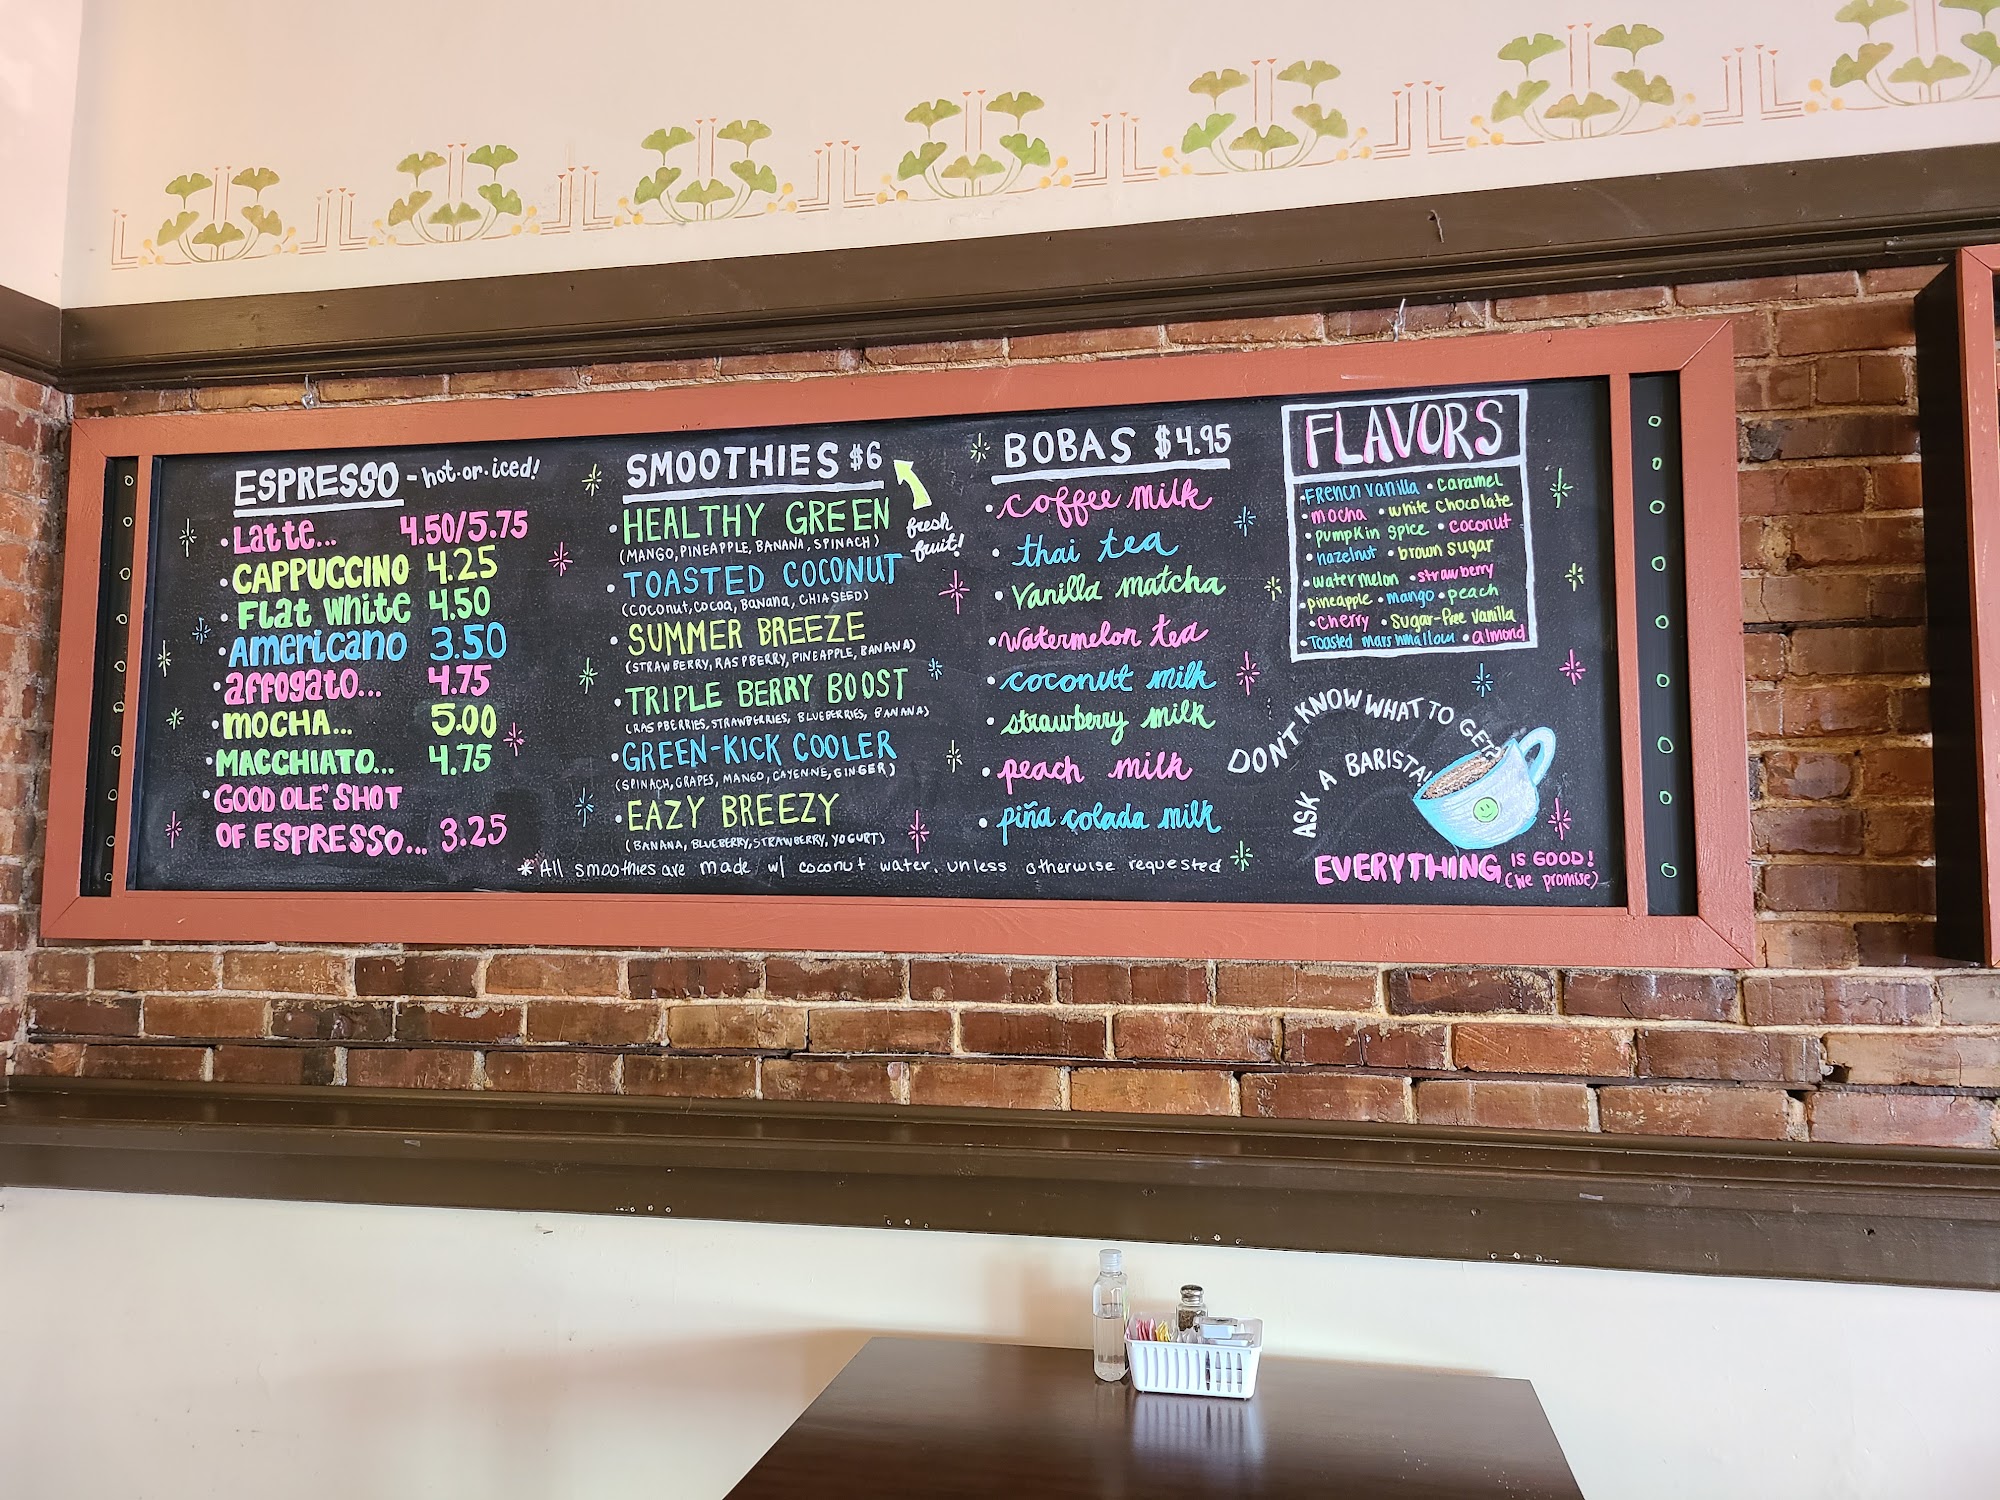 ESPRESSO - hot.or.iced!
Latte... 4.50/5.75
CAPPUCCINO 4.25
Flat White 4.50
Americano 3.50
affogato... 4.75
MOCHA... 5.00
MACCHIATO... 4.75
GOOD OLE' SHOT
OF ESPRESSO... 3.25
SMOOTHIES $6
fresh
fruit!
HEALTHY GREEN
(MANGO, PINEAPPLE, BANANA, SPINACH)
TOASTED COCONUT
(COCONUT, COCOA, BANANA, CHIASEED)
SUMMER BREEZE
(STRAWBERRY, RASPBERRY, PINEAPPLE, BANANA)
TRIPLE BERRY BOOST
(RASPBERRIES, STRAWBERRIES, BLUEBERRIES, BANANA)
GREEN-KICK COOLER
(SPINACH, GRAPES, MANGO, CAYENNE, GINGER)
EAZY BREEZY
(BANANA, BLUEBERRY, STRAWBERRY, YOGURT)
*All smoothies are made w/ coconut water, unless otherwise requested
BOBAS $4.95
coffee milk
thai tea
Vanilla matcha
watermelon tea
coconut milk
strawberry milk
peach milk
piña colada milk
FLAVORS
• French vanilla • caramel
• mocha • white chocolate
• pumpkin spice • coconut
• hazelnut • brown sugar
• watermelon • strawberry
• pineapple • mango • peach
• cherry • Sugar-free vanilla
• Toasted marshmallow • almond
DON'T KNOW WHAT TO GET?
ASK A BARISTA!
EVERYTHING IS GOOD!
(we promise)